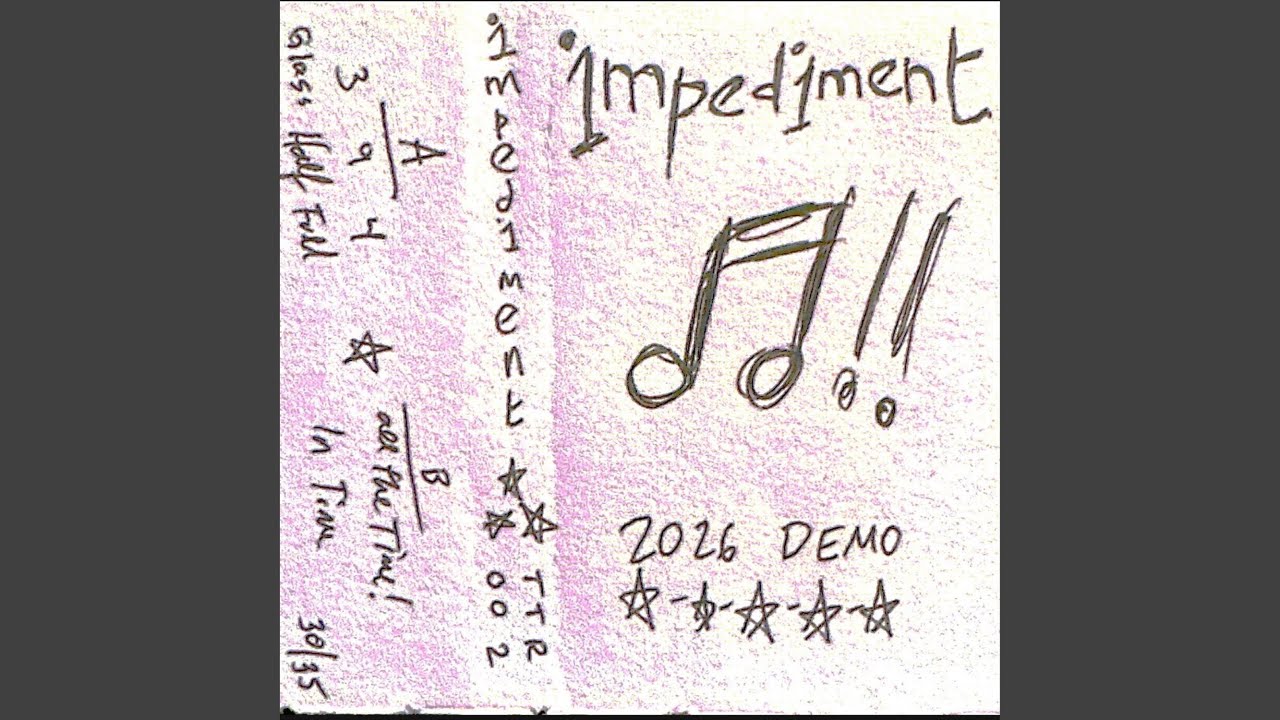 impediment
2026 DEMO
impediment
TTR
002
A
3 4 4
Glass Half Full
B
all the Time!
In Time
30/35